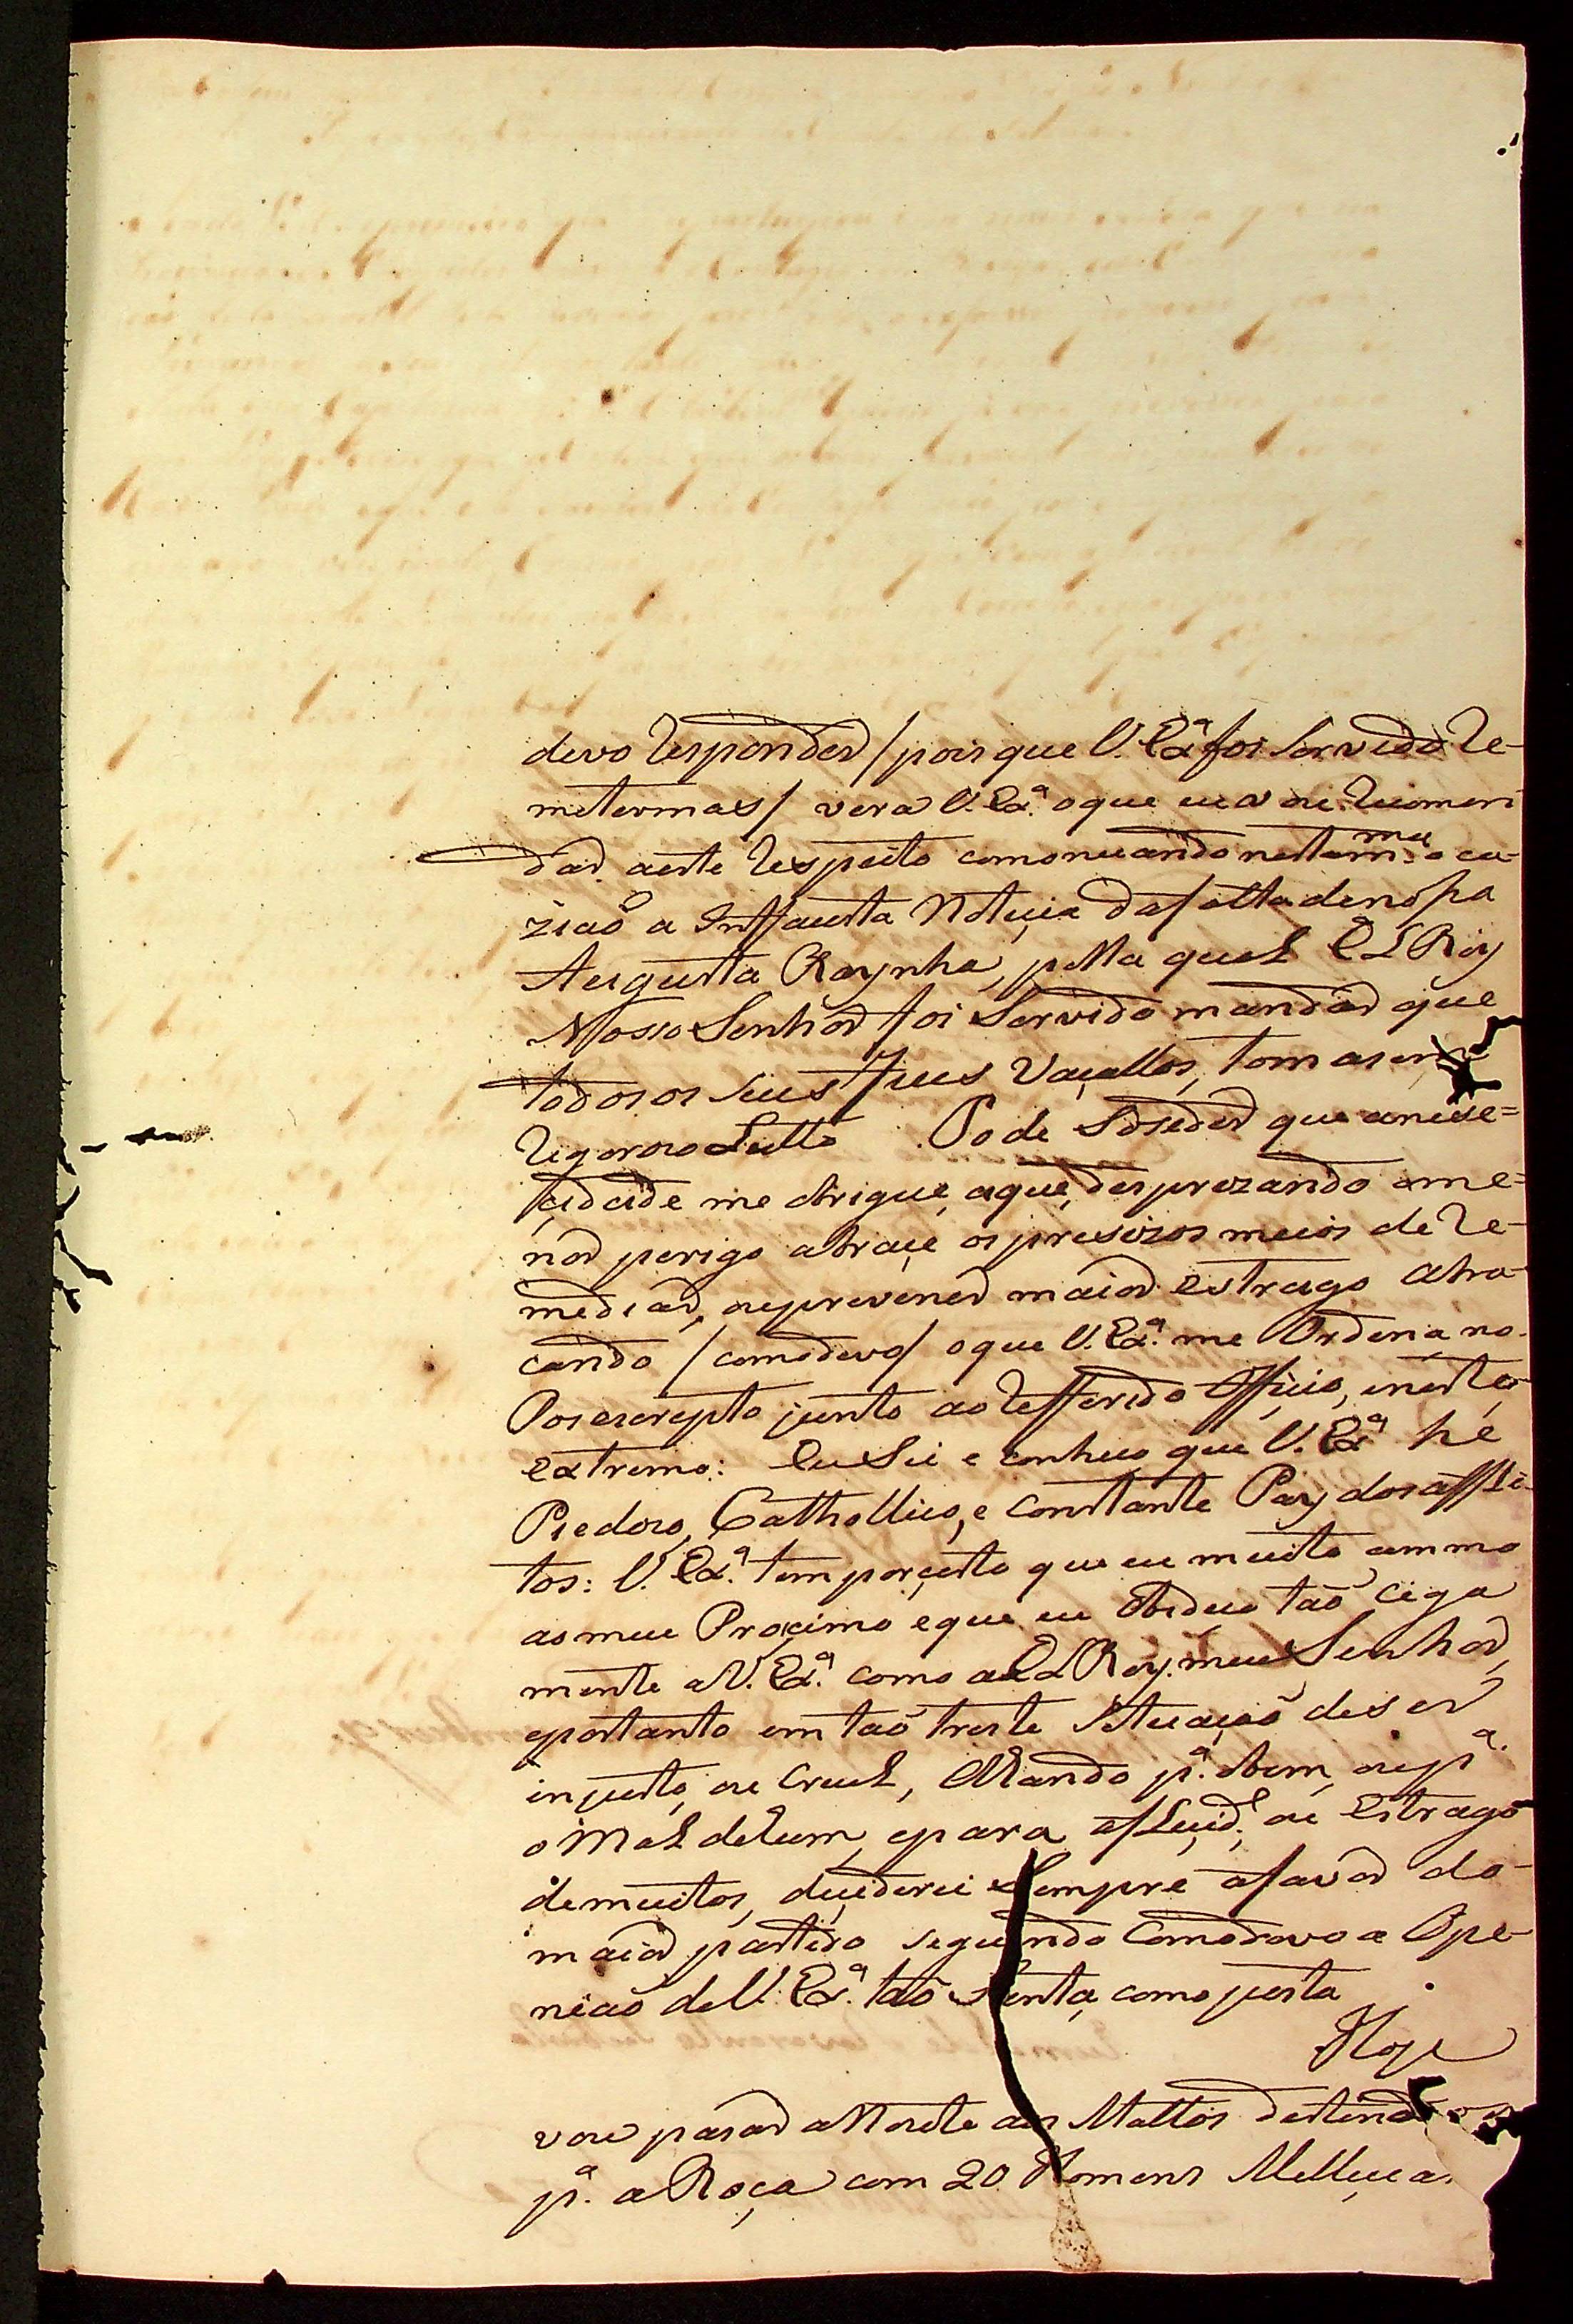 devo responder / pois que V. Exª foi Servido re-
metermas / vera V. Exª. o que eu a
dar aeste respeito comonicando nesta mma o ca-
zião a Inffausta Noticia dafalta denossa
Augusta Raynha, pella qual El Rey
Nosso Senhor foi Servido mandar que
todos os seus Vaçallos, tomasem
rigorozo Lutto Pode Soseder que anese-
çidade me obrigue, aque, desprezando ome-
nor perigo abraçe os presizos meios de re-
mediar, ouprevener maior estrago abra-
cando / comodevo / o que V. Exª. me Ordena no
Poscrepto junto ao refferido Offiçio, eneste
extremo: Eu Sei e conheço que V. Exª he
Piedozo, Catthollico, e constante Pay dos affli-
tos: V. Exª. tem porçerto que eu muito ammo
aomeu Proximo eque eu Obedeço tão cega
mente a V. Exª. como a El Rey meu Senhor,
eportanto em tão triste Setuação deser
injusto, ou cruel, Olhando pª. obem, oupª.
o Mal dehum, epara afeliçid.e ou Estrago
demuitos, deçiderei Sempre afavor do
maior partido seguindo Comodevo a Ope-
nião de V. Exª. tão Santa, como justa
Hoje
vou pasar a Noite aos Mattos destenados
pª. a Roça com 20 Homens Melliçia